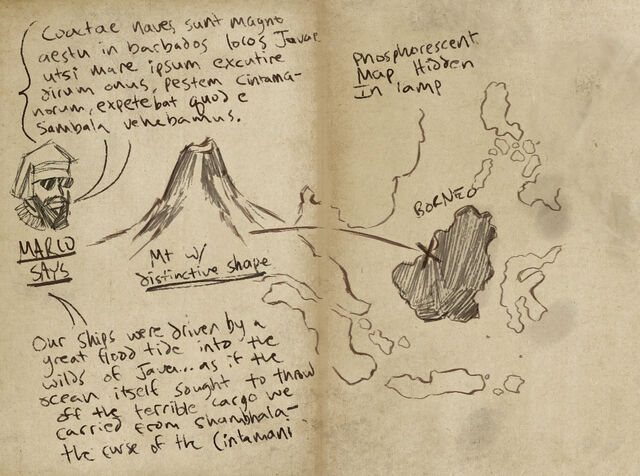 Coactae naves sunt magno
aestu in barbados locos Javae
utsi mare ipsum excutire
dirum onus, pestem Cintama-
norum, expetebat quod e
Sambala vehebamus.
MARCO
SAYS
Mt w/
distinctive shape
Our ships were driven by a
great flood tide into the
wilds of Java... as if the
ocean itself sought to throw
off the terrible cargo we
carried from Shambhala-
the curse of the Cintamani
Phosphorescent
Map Hidden
In lamp
BORNEO